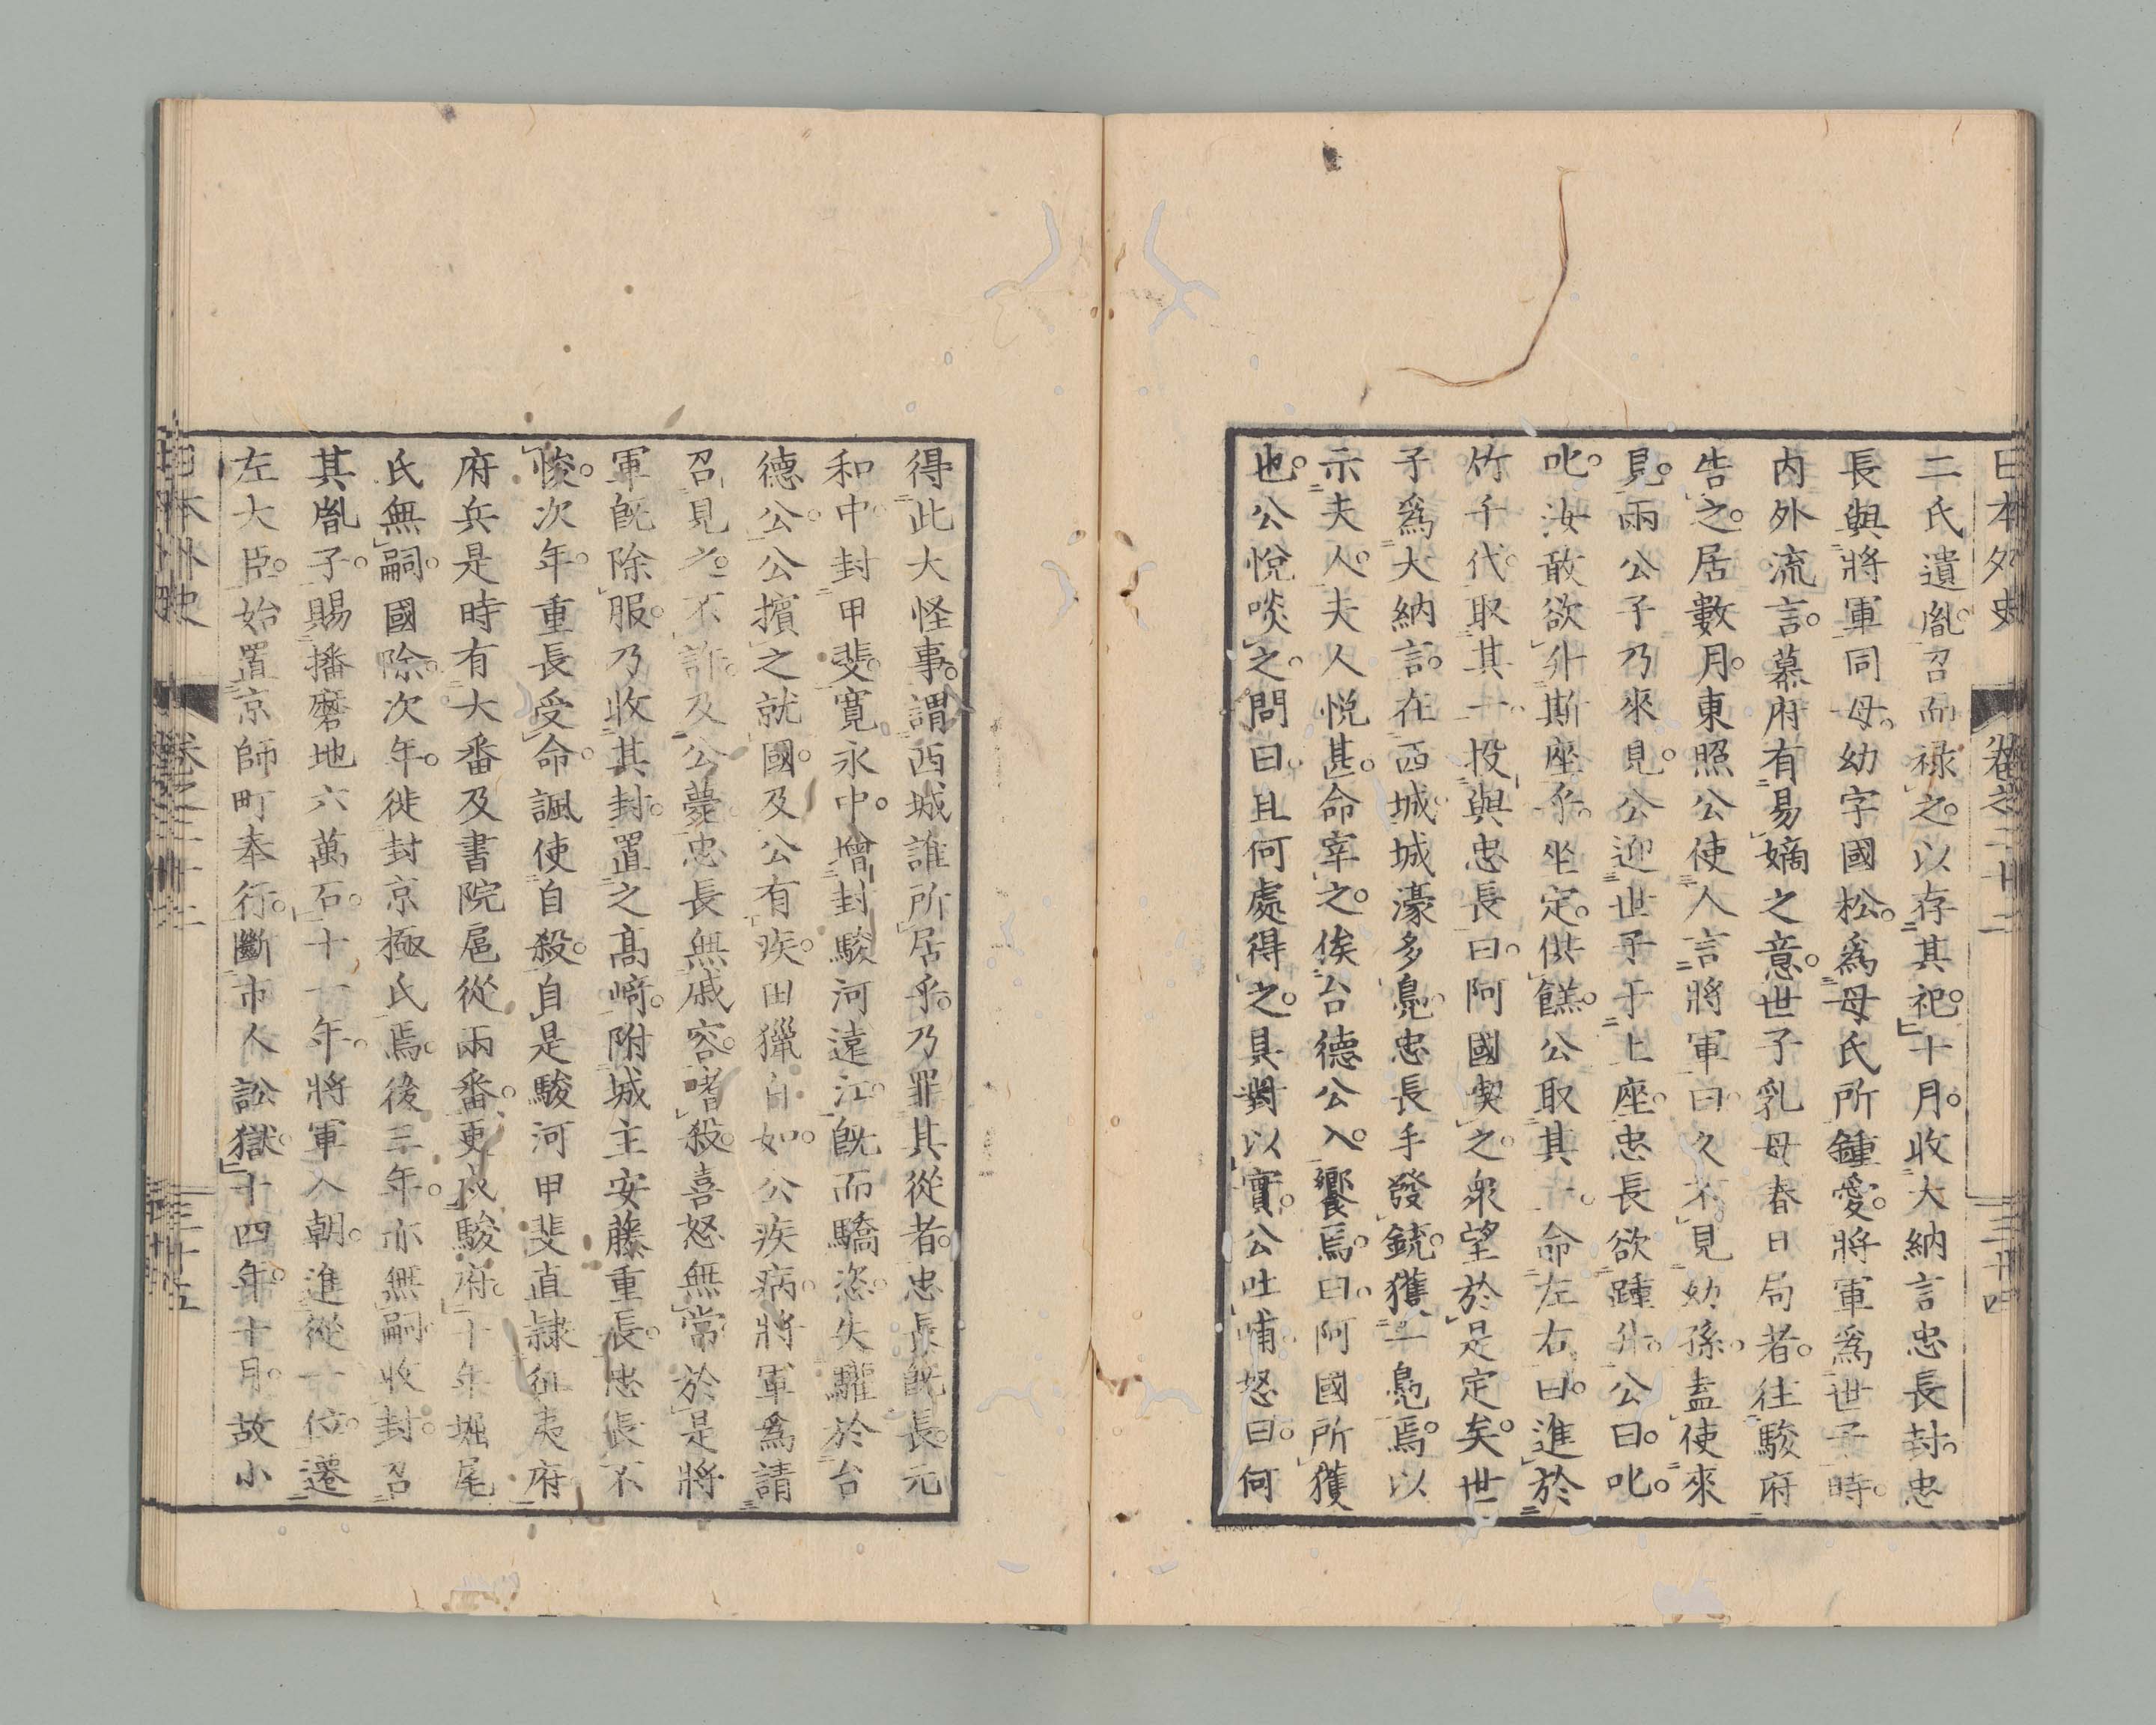 日本外史 卷之二十二 三十四
二氏遺胤。召而祿之。以存其祀。十月。收大納言忠長封。忠
長與將軍同母。幼字國松。爲母氏所鍾愛。將軍爲世子時。
内外流言。幕府有易嫡之意。世子乳母春日局者。往駿府
告之。居數月。東照公使人言將軍曰。久不見幼孫。盍使來
見。兩公子乃來見。公迎世子于上座。忠長欲踵升。公曰。叱。
叱。汝敢欲升斯座乎。坐定。供餻。公取其一。命左右曰。進於
竹千代。取其一。投與忠長曰。阿國喫之。衆望於是定矣。世
子爲大納言。在西城。城濠多鳧。忠長手發銃。獲一鳧焉。以
示夫人。夫人悦甚。命宰之。俟台德公入。饗焉。曰。阿國所獲
也。公悦啖之。問曰。且何處得之。具對以實。公吐哺怒曰。何
得此大怪事。謂西城誰所居乎。乃罪其從者。忠長既長。元
和中。封甲斐。寛永中。增封駿河遠江。既而驕恣。失驩於台
德公。公擯之就國。及公有疾。田獵自如。公疾病。將軍爲請
召見之。不許。及公薨。忠長無戚容。嗜殺。喜怒無常。於是將
軍既除服。乃收其封。置之高崎。附城主安藤重長。忠長不
悛。次年。重長受命。諷使自殺。自是駿河甲斐直隸征夷府。
府兵是時有大番及書院扈從兩番。更戍駿府。十年。堀尾
氏無嗣。國除。次年。徙封京極氏焉。後三年。亦無嗣。收封。召
其胤子。賜播磨地六萬石。十一年。將軍入朝。進從一位。遷
左大臣。始置京師町奉行。斷市人訟獄。十四年。十月。故小
日本外史 卷之二十二 三十五